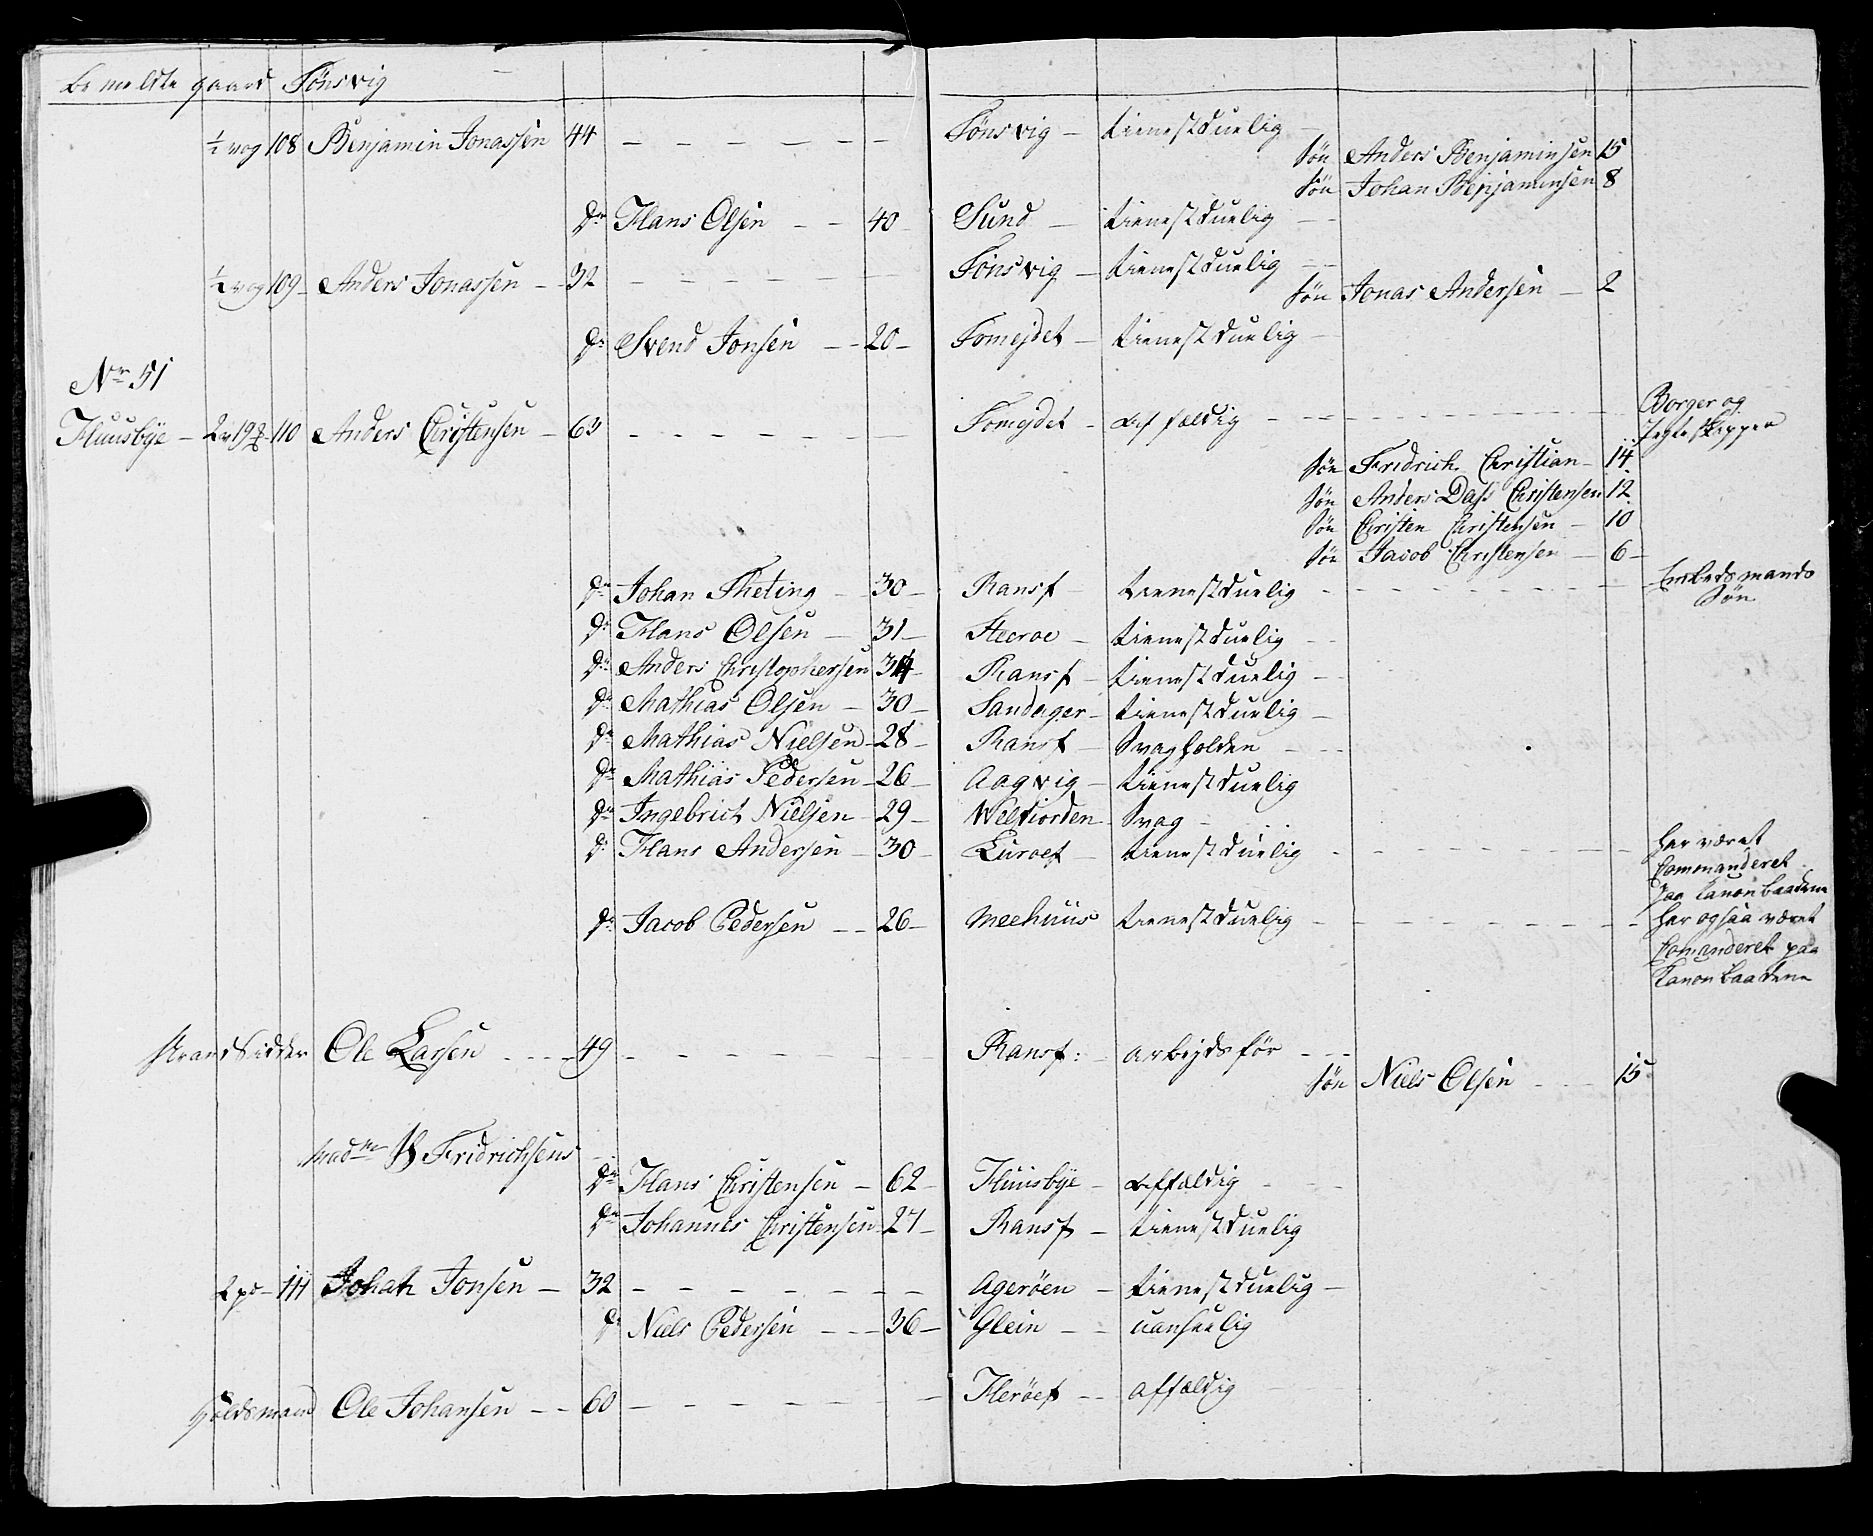 bemeldte gaard Tönsvig
½ vog 108 Benjamin Jonassen 44 — — — — — — Tönsvig — tienestduelig —
Søn Anders Benjaminsen 15
Søn Johan Benjaminsen 8
Dr Hans Olsen — — 40 — Sund — tienestduelig — —
½ vog 109 — Anders Jonassen — — 32 — — — — — — Tönsvig — tienestduelig — —
Søn Jonas Andersen — 2
Dr Svend Jonsen — — 20 — Tomejdet — tienestduelig —
Nr 51
Huusbye — 2 v 19 110 Anders Christensen — 63 — — — — — — Tomejdet — affældig — — — Borger og
Jegteskipper
Søn Fridrich Christian — 14
Søn Anders Dass Christensen 12
Søn Christen Christensen — 10
Søn Jacob Christensen — 6 —
Dr Johan Theting — 30 — Ransf — tienestduelig — — — Embedsmands
Søn
Dr Hans Olsen — 31 — Stecroe — tienestduelig — —
Dr Anders Christophersen 34 — Ransf — tienestduelig — —
Dr Mathias Olsen — 30 — Sandager — tienestduelig —
Dr Mathias Nielsen — 28 — Ransf — Svagholden — — —
Dr Mathias Pedersen — 26 — Aagvig — tienestduelig
Dr Ingebrict Nielsen — 29 — Welfiorden — Svag —
Dr Hans Andersen — 30 — Euroef — tienestduelig — — — har været
Commanderet
paa Canonbaadene
Dr Jacob Pedersen — — 26 — Meehuus tienestduelig — — — har ogsaa været
Comanderet paa
Canonbaadene
Strandsidder Ole Larsen — — — 49 — — — — — — Ransf: — arbejdsför — — —
Søn Niels Olsen — — 15
Madme Fridrichsens
Dr Hans Christensen — 62 — Huusbye — affældig —
Dr Johannes Christensen — 27 — Ransf — tienestduelig
2 pd — 111 Johan Jonsen — 32 — — — — — — — Agerøen — tienestduelig —
Dr Niels Pedersen — — — 36 — Glein — — uanseelig
Huldsmand Ole Johansen — — 60 — — — — — — Herøef — — affældig